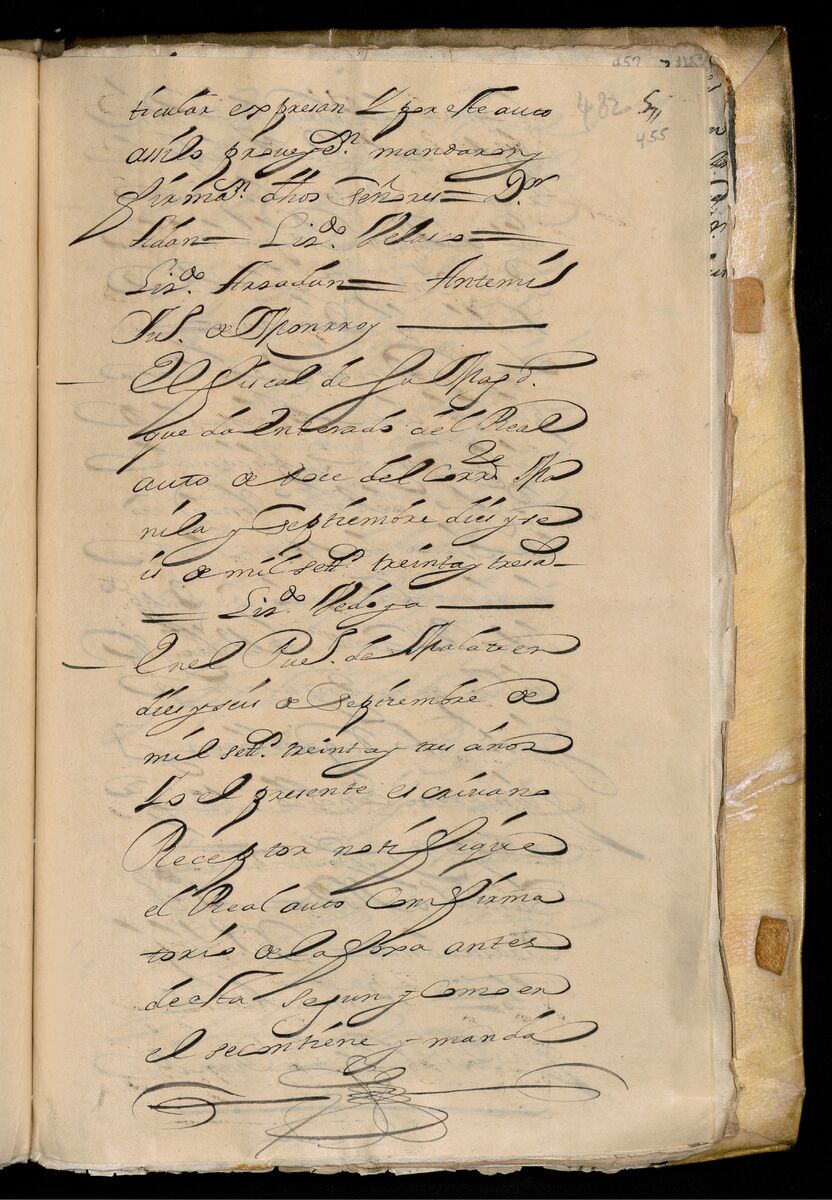 457
482
455
ticular expresan Y por este auto
assi lo proveye.n mandaron y
firma.n dhos Señores = D.or
Liz.do Velasco =
Liz.do Arsadun = Antemi
Ju.l de Monrroy
El fiscal de Su Mag.d
queda enterado del Real
auto de doce del corr.te Ma
nila y Septiembre dies y se
is de mil set.s treinta y tres a.s
= Liz.do Vedoya
En el Pue.l de Malate en
dies y seis de Septiembre de
mil set.s treinta y tres años
Yo el presente escrivano
Réceptor notifiqúe
el Real auto Confirma
torio de la foxa antes
de esta segun y como en
el se contiene y manda